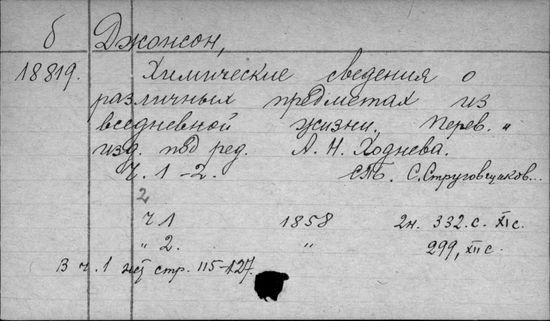 б Джонсон,
18819. Химические сведения о
различных предметах из
вседневной жизни, перев. „
изд. под ред. А. Н. Ходнева.
Ч. 1-2. СПБ. С. Струговщиков...
2
Ч 1 1858 2н. 332.с. XI с.
„ 2. „ 299, XII с.
В ч. 1 нет стр. 115-127.